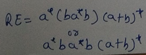 RE = a* (ba*b) (a+b)*
or
a* b a* b (a+b)*